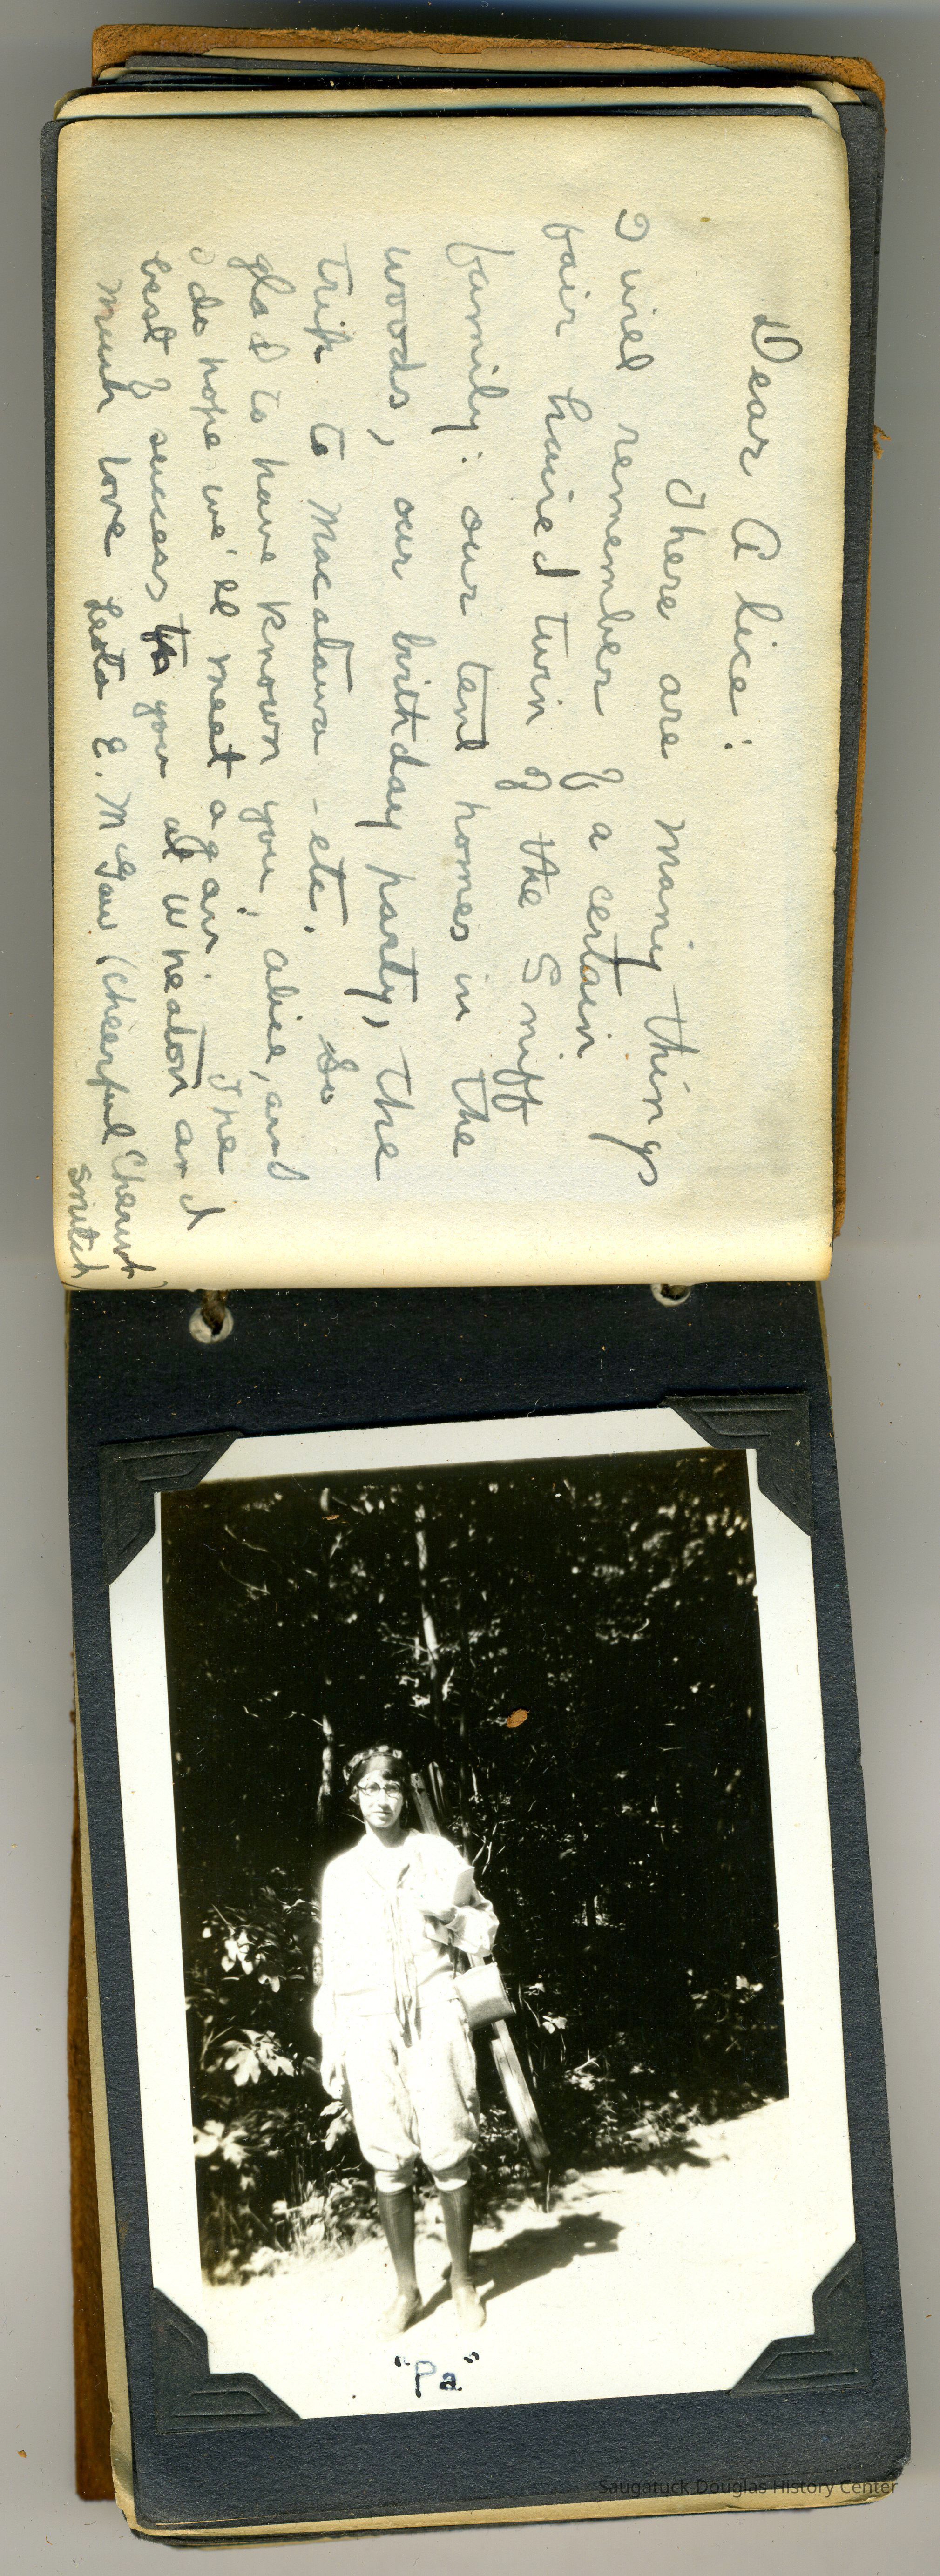 Dear Alice:
There are many things
I will remember of a certain
fair haired twin of the Sniff
family: our tent homes in the
woods, our birthday party, the
trip to Macatawa - etc. So
glad to have known you, alice, and
I do hope we'll meet again. The
best of success to you at Wheaton and
Much love Leota E. McGaw (Cheerful Cherub)
Smitch
"Pa"
Saugatuck-Douglas History Center